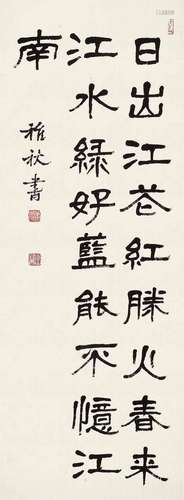 日出江花紅勝火春来
江水緑好藍能不憶江
南
稚秋書